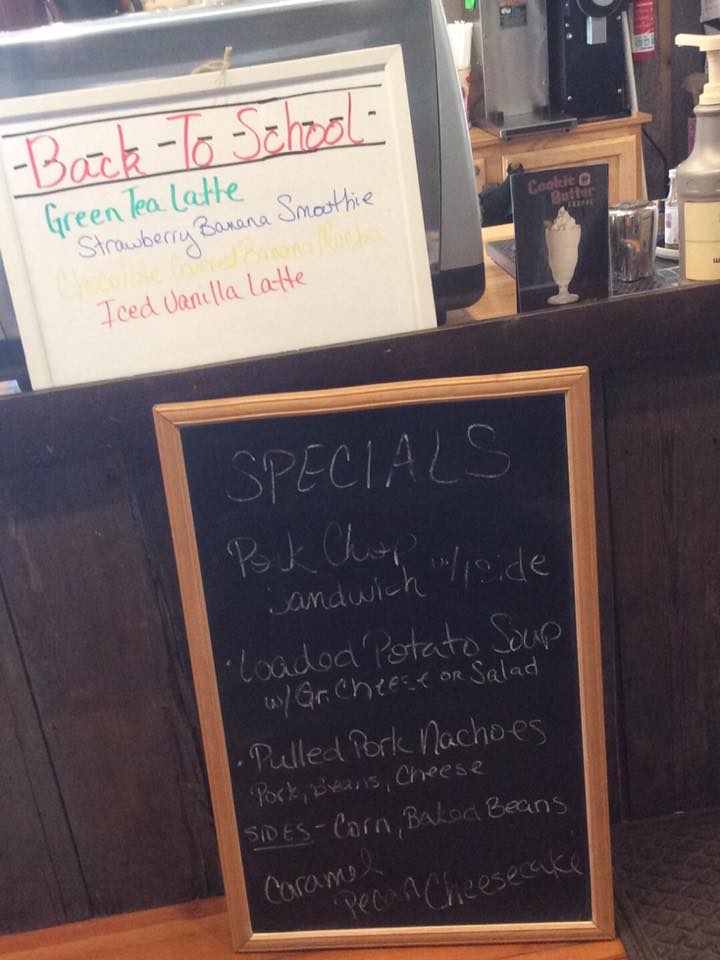 Back To School
Green Tea Latte
Strawberry Banana Smoothie
Chocolate Covered Banana Mocha
Iced Vanilla Latte
Cookie Butter
FRAPPE
SPECIALS
Pork Chop
Sandwich w/1 side
· Loaded Potato Soup
w/Gr. Cheese or Salad
· Pulled Pork Nachoes
Pork, Beans, Cheese
SIDES - Corn, Baked Beans
Caramel
Pecan Cheesecake